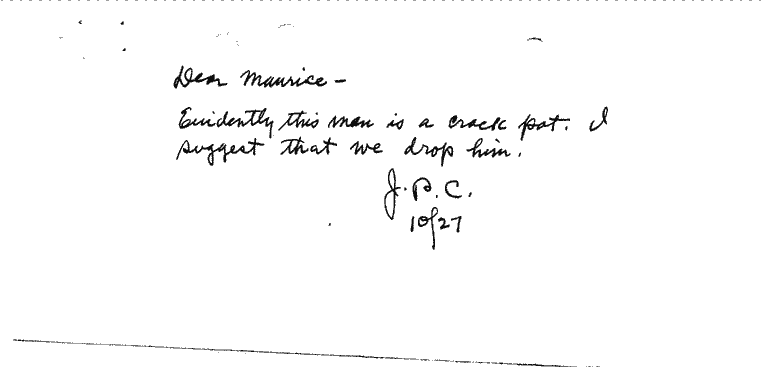 Dear Maurice -
Evidently this man is a crack pot. I
suggest that we drop him.
J.P.C.
10/27